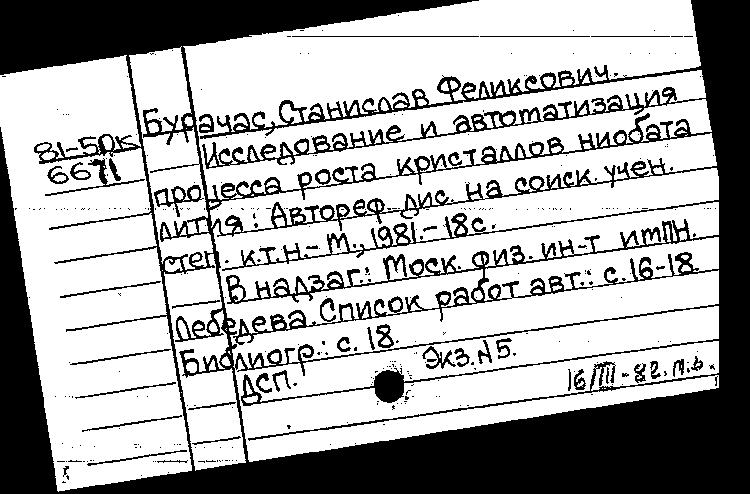 Бурачас, Станислав Феликсович.
81-5ДК
6671
Исследование и автоматизация
процесса роста кристаллов ниобата
лития: Автореф. дис. на соиск. учен.
степ. к.т.н.- М., 1981.- 18с.
В надзаг.: Моск. физ. ин-т им П.Н.
Лебедева. Список работ авт.: с. 16-18.
Библиогр.: с. 18.
ДСП. Экз. N5.
16/III-82.